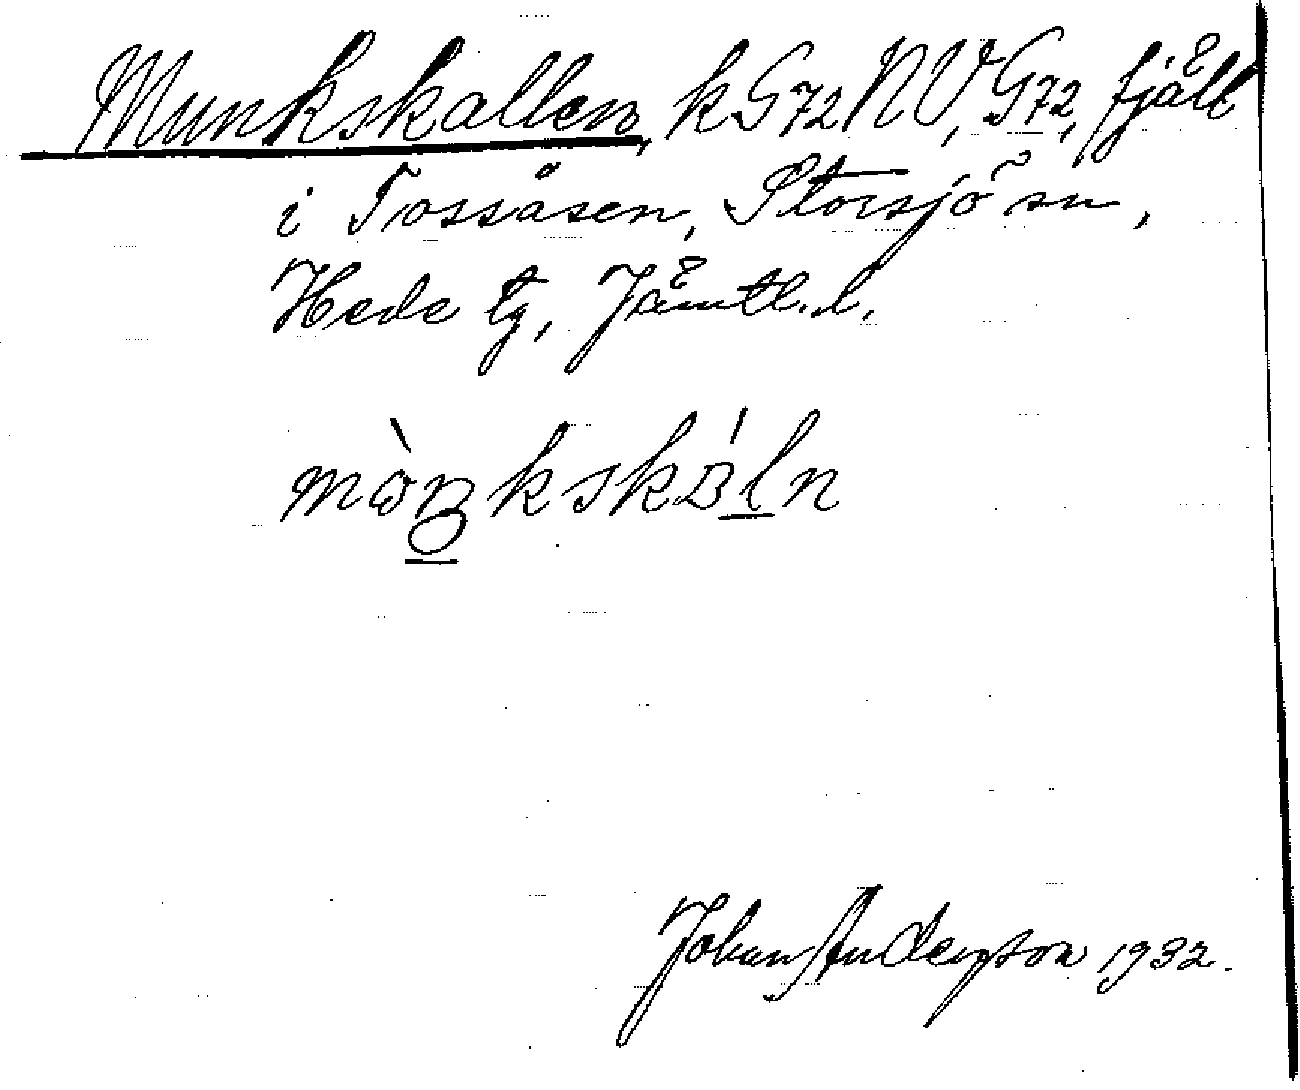 Munkskallen, k G72NV, G72, fjäll
i Tossåsen, Storsjö sn,
Hede tg, Jämtl. l.
Johan Anderson 1932.